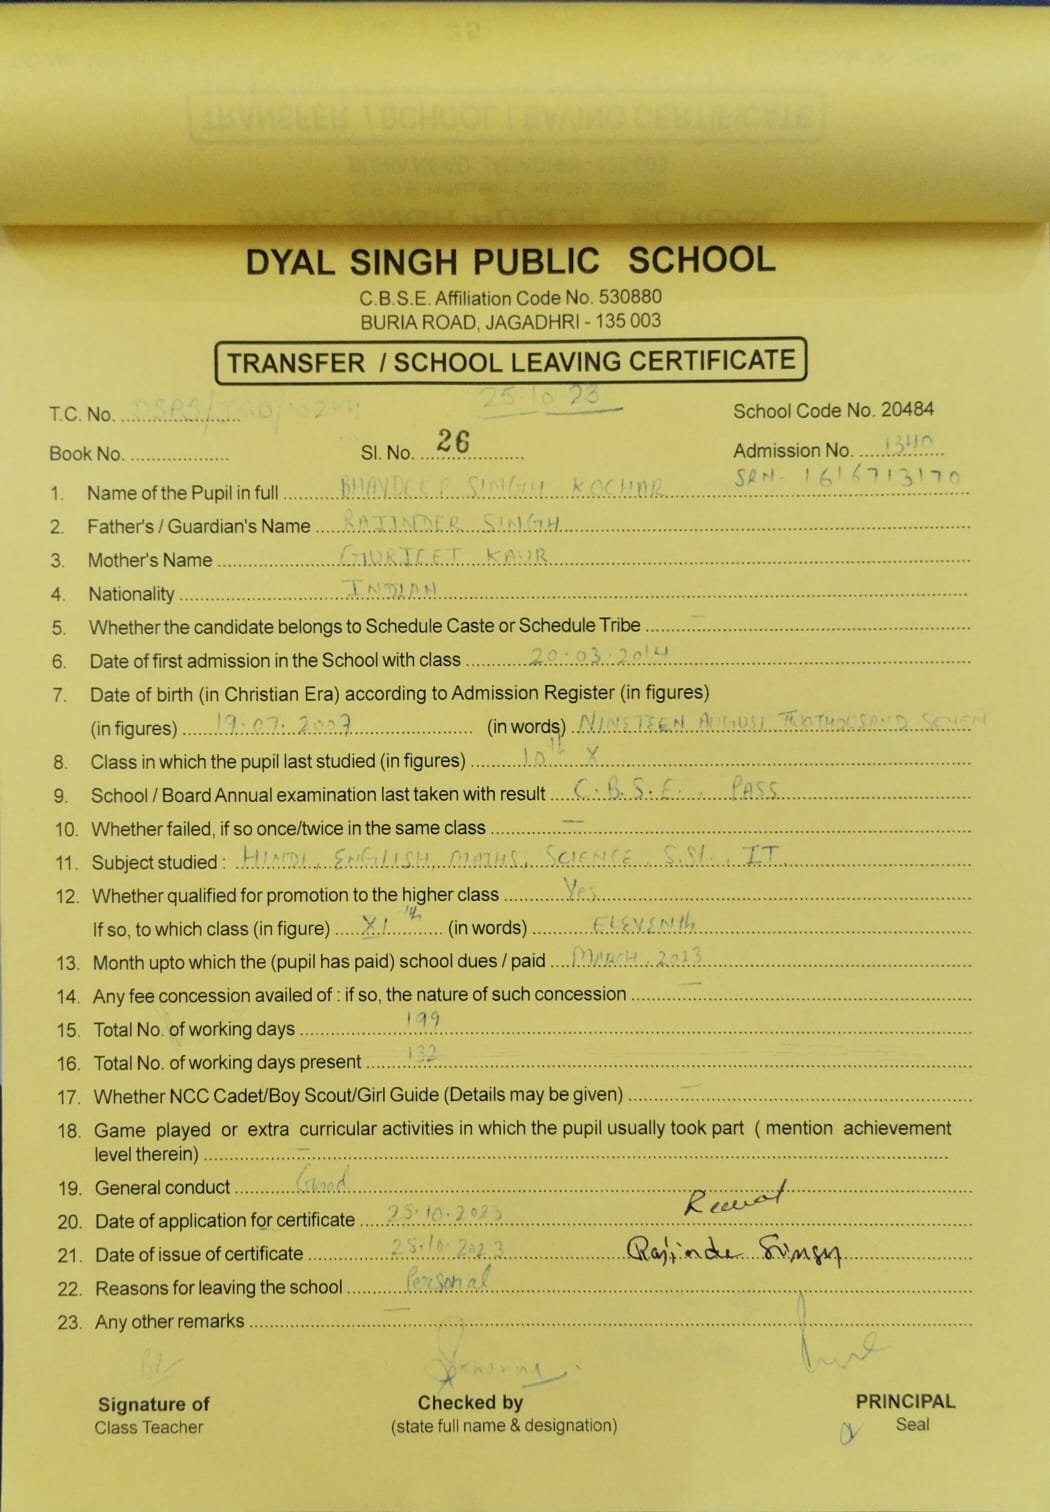 DYAL SINGH PUBLIC SCHOOL
C.B.S.E. Affiliation Code No. 530880
BURIA ROAD, JAGADHRI - 135 003
TRANSFER / SCHOOL LEAVING CERTIFICATE
25.10.23
T.C. No. School Code No. 20484
Book No. Sl. No. 26 Admission No. 1340
SRN. 1616713170
1. Name of the Pupil in full SINGH KOCHAR
2. Father's / Guardian's Name RAJINDER SINGH
3. Mother's Name GURJEET KAUR
4. Nationality INDIAN
5. Whether the candidate belongs to Schedule Caste or Schedule Tribe —
6. Date of first admission in the School with class 20.03.2014
7. Date of birth (in Christian Era) according to Admission Register (in figures)
(in figures) 19.07.2007 (in words) NINETEEN AUGUST TWOTHOUSAND SEVEN
8. Class in which the pupil last studied (in figures) 10th X
9. School / Board Annual examination last taken with result C.B.S.E. PASS
10. Whether failed, if so once/twice in the same class —
11. Subject studied : HINDI, ENGLISH, MATHS, SCIENCE, S.St., IT.
12. Whether qualified for promotion to the higher class Yes
If so, to which class (in figure) XIth (in words) ELEVENth
13. Month upto which the (pupil has paid) school dues / paid MARCH, 2023
14. Any fee concession availed of : if so, the nature of such concession —
15. Total No. of working days 199
16. Total No. of working days present 132
17. Whether NCC Cadet/Boy Scout/Girl Guide (Details may be given) —
18. Game played or extra curricular activities in which the pupil usually took part ( mention achievement
level therein) —
19. General conduct Good
20. Date of application for certificate 25.10.2023
21. Date of issue of certificate 25.10.2023 Rajinder Singh
22. Reasons for leaving the school Personal
23. Any other remarks —
Signature of Checked by PRINCIPAL
Class Teacher (state full name & designation) Seal